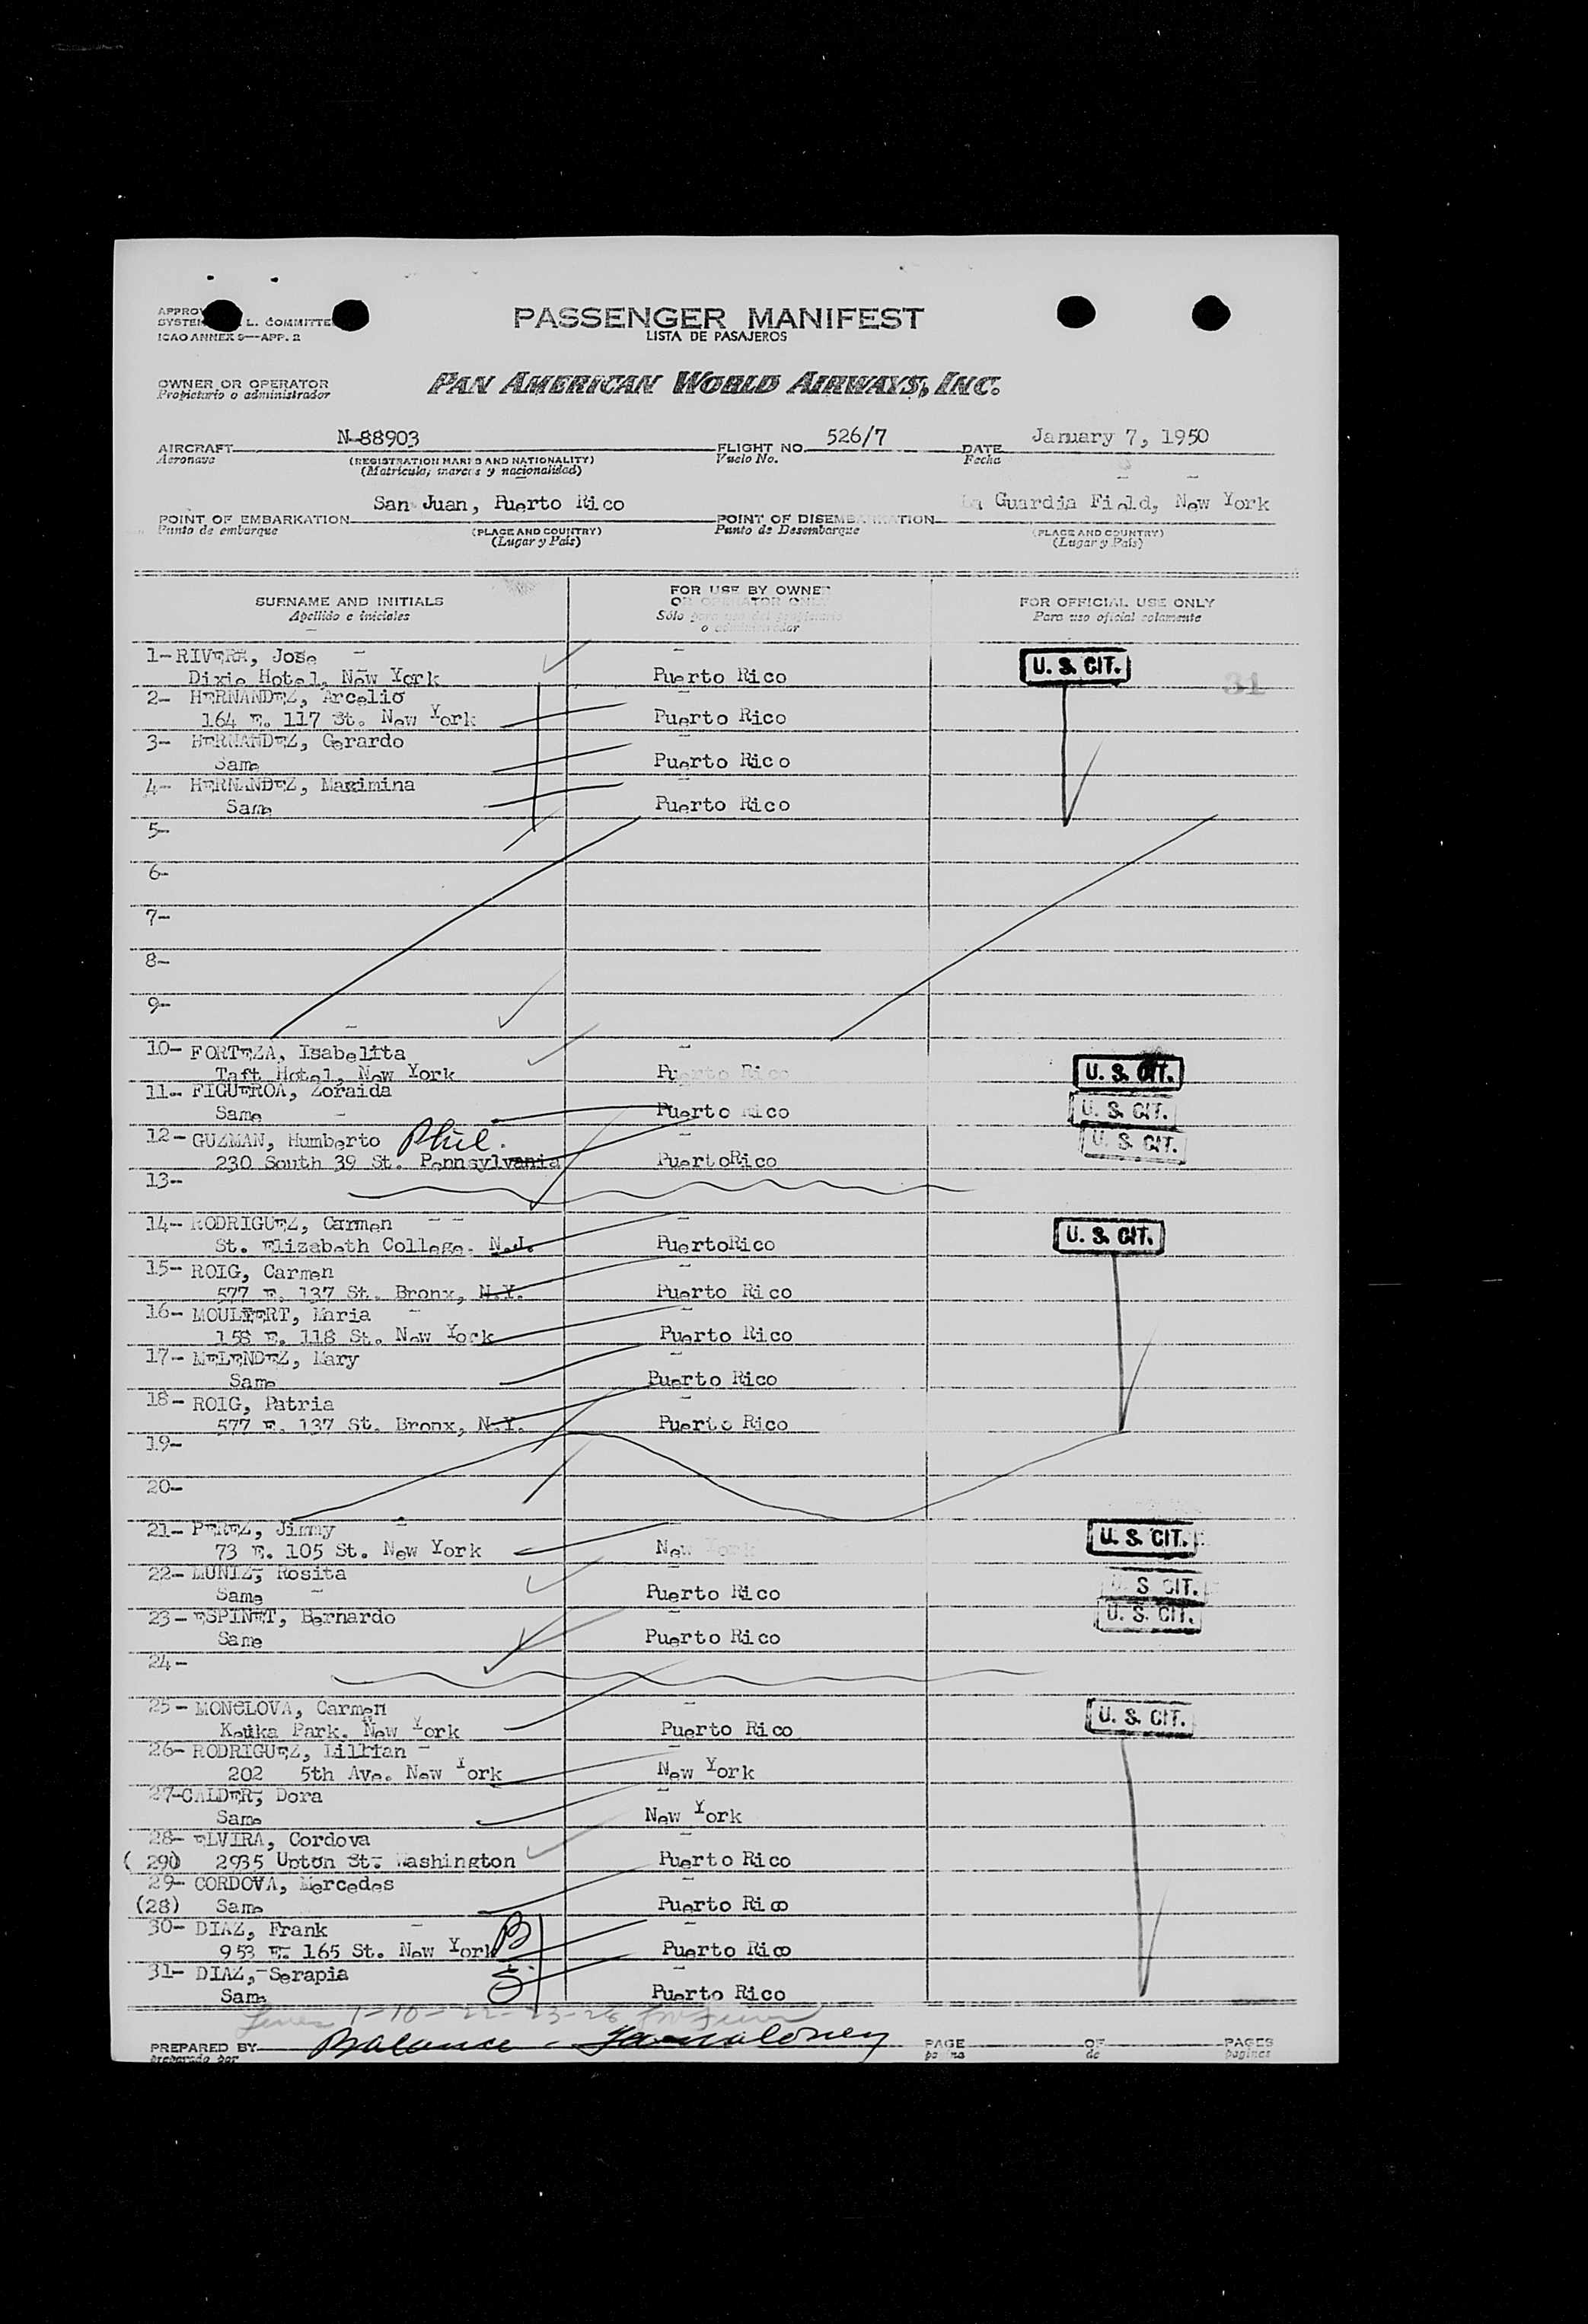 PASSENGER MANIFEST
LISTA DE PASAJEROS
L. COMMITTE
ICAO ANNEX 9—APP. 2
OWNER OR OPERATOR
Propietario o administrador
PAN AMERICAN WORLD AIRWAYS, INC.
AIRCRAFT N-88903 FLIGHT NO. 526/7 DATE January 7, 1950
Aeronave (REGISTRATION MARKS AND NATIONALITY) Vuelo No. Fecha
(Matricula, marcas y nacionalidad)
POINT OF EMBARKATION San Juan, Puerto Rico POINT OF DISEMBARKATION La Guardia Field, New York
Punto de embarque (PLACE AND COUNTRY) Punto de Desembarque (PLACE AND COUNTRY)
(Lugar y Pais) (Lugar y Pais)
SURNAME AND INITIALS FOR USE BY OWNER FOR OFFICIAL USE ONLY
OR OPERATOR ONLY
Apellido e iniciales Sólo para uso del propietario Para uso oficial solamente
o administrador
1- RIVERA, Jose U. S. CIT.
Dixie Hotel, New York Puerto Rico 31
2- HERNANDEZ, Arcelio
164 E. 117 St. New York Puerto Rico
3- HERNANDEZ, Gerardo
Same Puerto Rico
4- HERNANDEZ, Maximina
Same Puerto Rico
5-
6-
7-
8-
9-
10- FORTEZA, Isabelita
Taft Hotel, New York Puerto Rico U. S. CIT.
11- FIGUEROA, Zoraida
Same Puerto Rico U. S. CIT.
12- GUZMAN, Humberto Phil. U. S. CIT.
230 South 39 St. Pennsylvania PuertoRico
13-
14- RODRIGUEZ, Carmen U. S. CIT.
St. Elizabeth College. N.J. PuertoRico
15- ROIG, Carmen
577 E. 137 St. Bronx, N.Y. Puerto Rico
16- MOULFERT, Maria
158 E. 118 St. New York Puerto Rico
17- MELENDEZ, Mary
Same Puerto Rico
18- ROIG, Patria
577 E. 137 St. Bronx, N.Y. Puerto Rico
19-
20-
21- PEREZ, Jimmy U. S. CIT.
73 E. 105 St. New York New York
22- MUNIZ, Rosita
Same Puerto Rico U. S. CIT.
23- ESPINET, Bernardo U. S. CIT.
Same Puerto Rico
24-
25- MONCLOVA, Carmen U. S. CIT.
Keuka Park, New York Puerto Rico
26- RODRIGUEZ, Lillian
202 5th Ave. New York New York
27-CALDER, Dora
Same New York
28- ELVIRA, Cordova
(29) 2935 Upton St. Washington Puerto Rico
29- CORDOVA, Mercedes
(28) Same Puerto Rico
30- DIAZ, Frank B
953 E. 165 St. New York Puerto Rico
31- DIAZ, Serapia
Same Puerto Rico
Lines 1-10-22-23-28
PREPARED BY Balance - PAGE OF PAGES
preparado por pagina de paginas